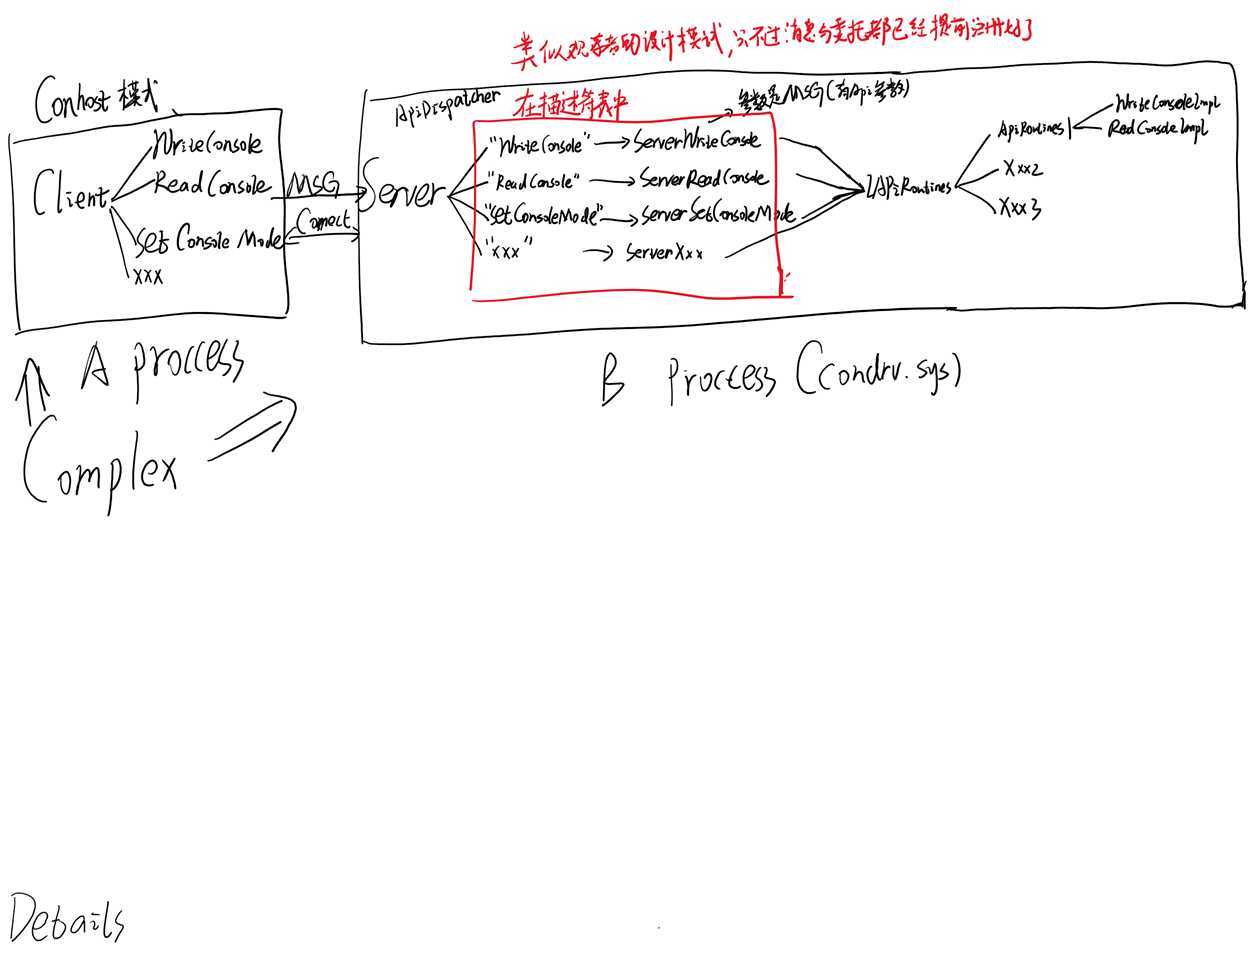 类似观察者的设计模式,只不过消息与委托都已经提前注册好了
Conhost 模式
ApiDispatcher
在描述符表中
参数是MSG(有Api参数)
Client
WriteConsole
ReadConsole
Set Console Mode
xxx
MSG
Connect
Server
"WriteConsole" → ServerWriteConsole
"ReadConsole" → ServerReadConsole
"SetConsoleMode" → ServerSetConsoleMode
"xxx" → ServerXxx
IApiRoutines
ApiRoutines1
Xxx2
Xxx3
WriteConsoleImpl
ReadConsoleImpl
A process
B Process (condrv.sys)
Complex
Details